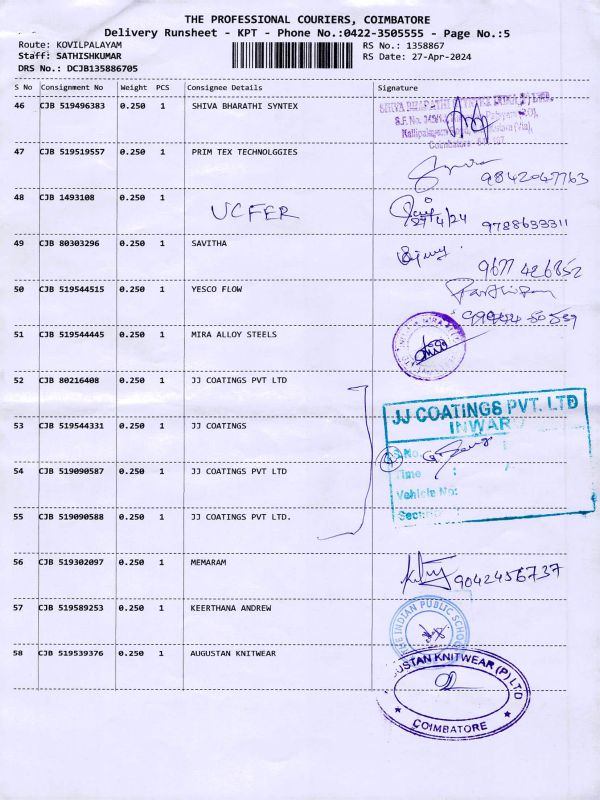 THE PROFESSIONAL COURIERS, COIMBATORE
Delivery Runsheet - KPT - Phone No.:0422-3505555 - Page No.:5
Route: KOVILPALAYAM
RS No.: 1358867
Staff: SATHISHKUMAR
RS Date: 27-Apr-2024
DRS No.: DCJB135886705
S No Consignment No Weight PCS Consignee Details Signature
46 CJB 519496383 0.250 1 SHIVA BHARATHI SYNTEX
SHIVA BHARATHI
S.F. No.
Coimbatore
47 CJB 519519557 0.250 1 PRIM TEX TECHNOLGGIES
9842047763
48 CJB 1493108 0.250 1 UCFER
27/4/24 9788633311
49 CJB 80303296 0.250 1 SAVITHA
9677 426852
50 CJB 519544515 0.250 1 YESCO FLOW
51 CJB 519544445 0.250 1 MIRA ALLOY STEELS
52 CJB 80216408 0.250 1 JJ COATINGS PVT LTD
JJ COATINGS PVT. LTD
INWARD
53 CJB 519544331 0.250 1 JJ COATINGS
S.No.
54 CJB 519090587 0.250 1 JJ COATINGS PVT LTD
Time :
Vehicle No:
55 CJB 519090588 0.250 1 JJ COATINGS PVT LTD.
56 CJB 519302097 0.250 1 MEMARAM
9042456737
57 CJB 519589253 0.250 1 KEERTHANA ANDREW
THE INDIAN PUBLIC SCHOOL
58 CJB 519539376 0.250 1 AUGUSTAN KNITWEAR
GUSTAN KNITWEAR (P) LTD
COIMBATORE